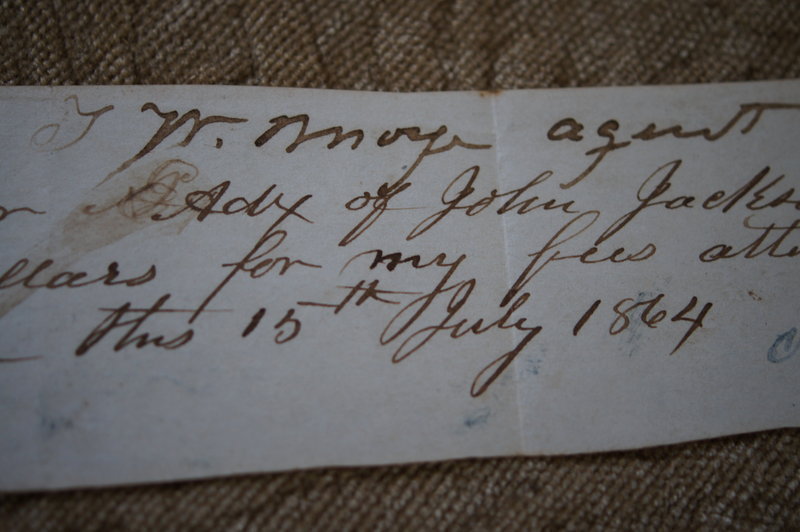 T W. Moye agent
r Adx of John Jackso
llars for my fees atte
this 15th July 1864